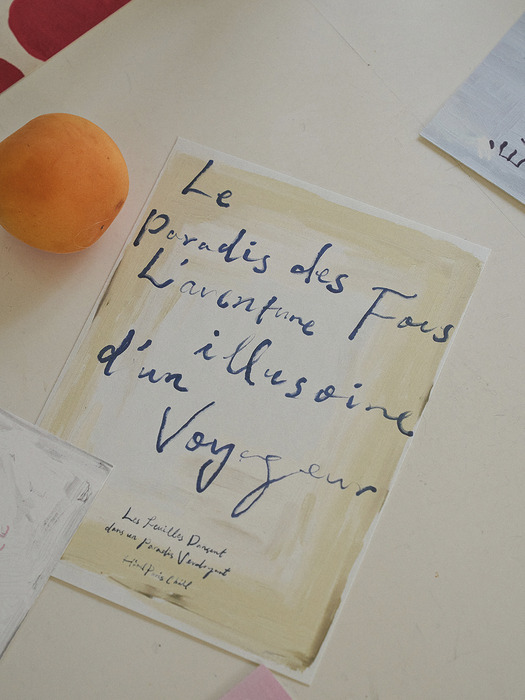 Le
Paradis des Fous
L'aventure
illusoire
d'un
Voyageur
Les Feuilles Dansent
dans un Paradis Verdoyant